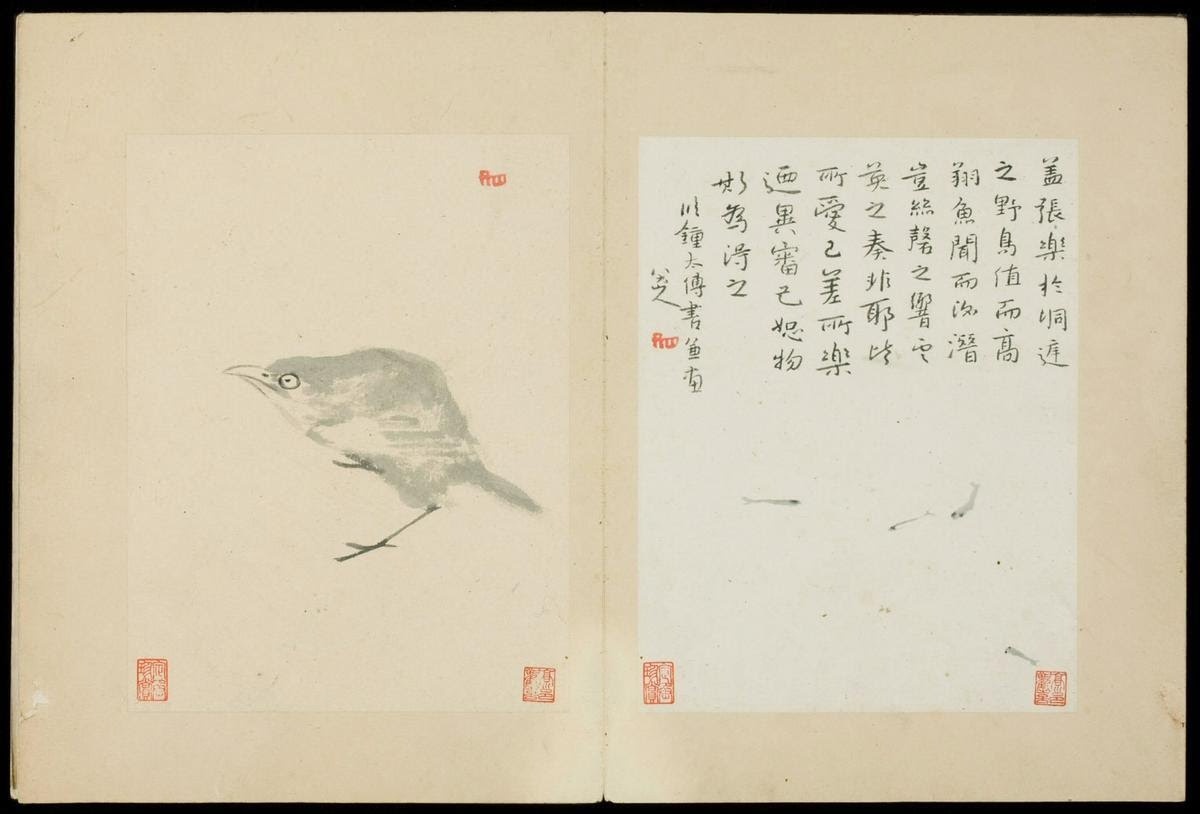 盖張樂於洞庭
之野鳥值而高
翔魚聞而深潛
豈絲磬之響云
英之奏非耶此
所愛已差所樂
迺異審己恕物
斯為得之
鍾太傅書並畫
八大山人